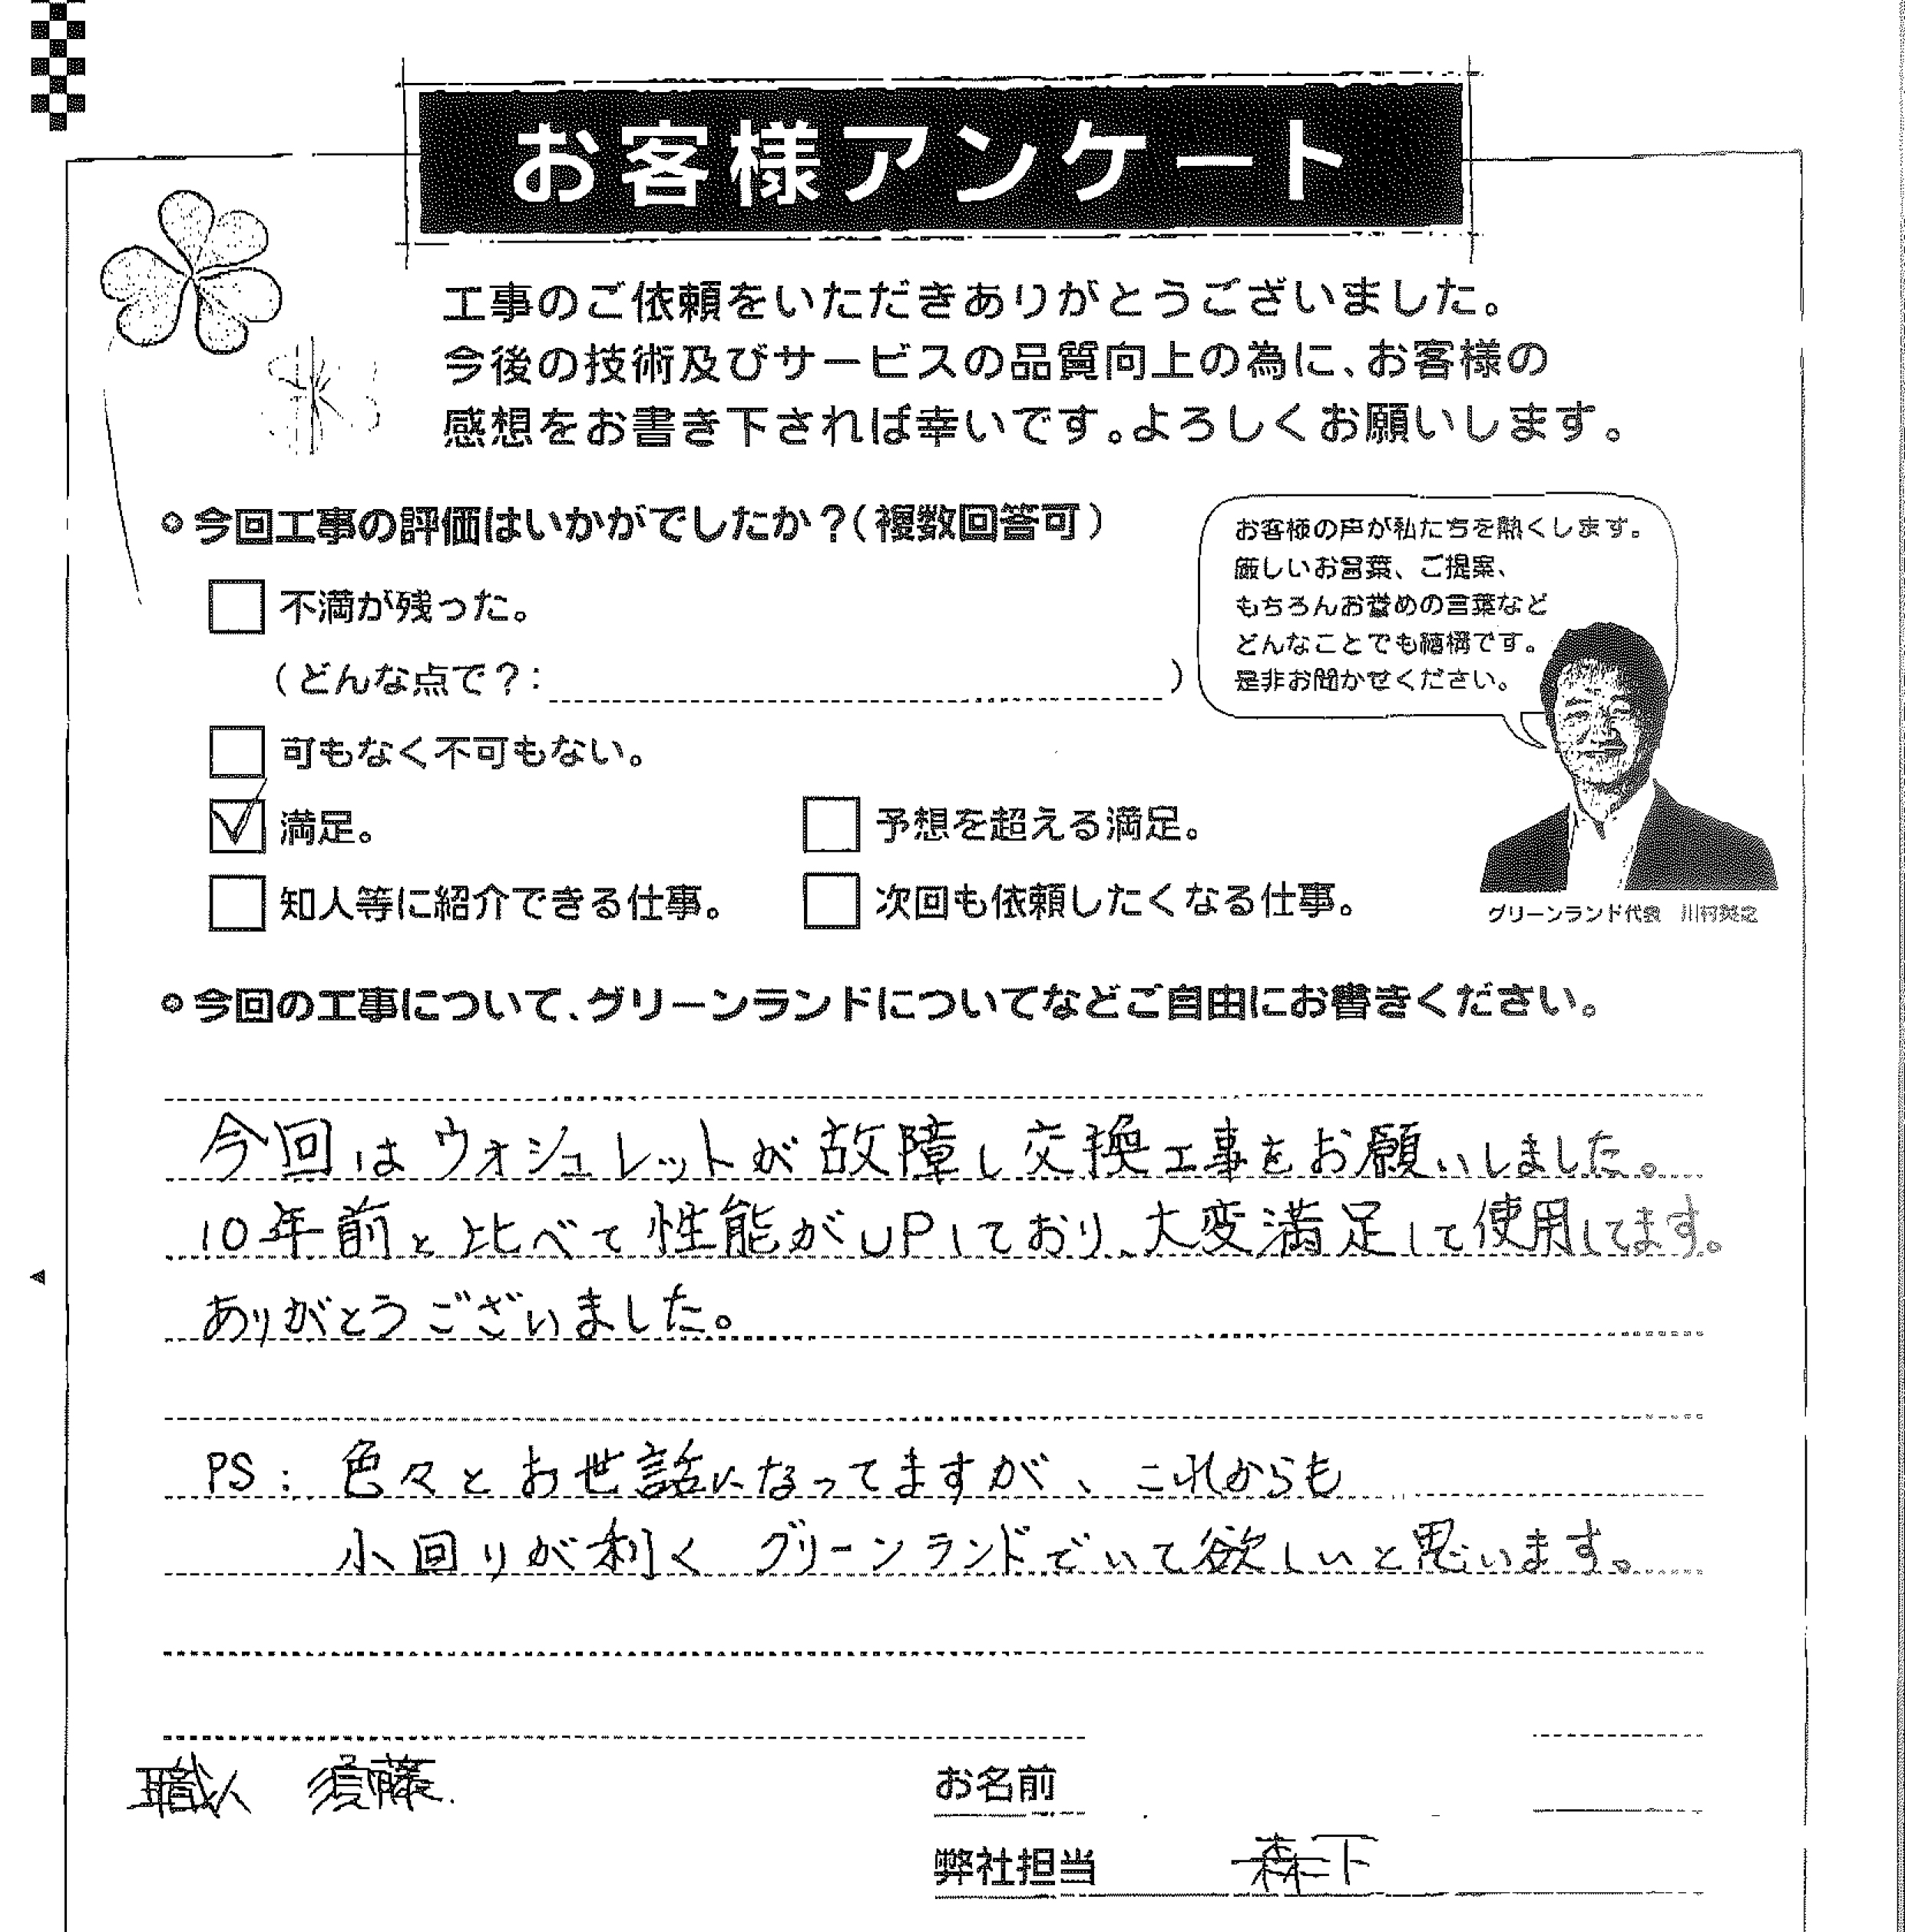 お客様アンケート
工事のご依頼をいただきありがとうございました。
今後の技術及びサービスの品質向上の為に、お客様の
感想をお書き下されば幸いです。よろしくお願いします。
今回工事の評価はいかがでしたか？(複数回答可)
お客様の声が私たちを熱くします。
厳しいお言葉、ご提案、
もちろんお誉めの言葉など
どんなことでも結構です。
是非お聞かせください。
不満が残った。
(どんな点で？: )
可もなく不可もない。
満足。 予想を超える満足。
知人等に紹介できる仕事。 次回も依頼したくなる仕事。
グリーンランド代表 川村英之
今回の工事について、グリーンランドについてなどご自由にお書きください。
今回はウォシュレットが故障し交換工事をお願いしました。
10年前と比べて性能がUPしており、大変満足して使用してます。
ありがとうございました。
PS: 色々とお世話になってますが、これからも
小回りが利く グリーンランドでいて欲しいと思います。
職人 須藤.
お名前
弊社担当 森下